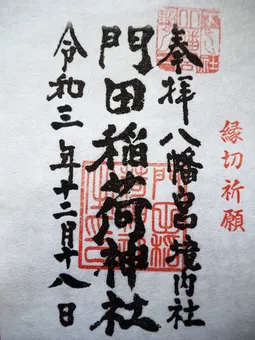 奉拝 八幡宮境内社
縁切祈願
門田稲荷神社
令和三年十二月十八日